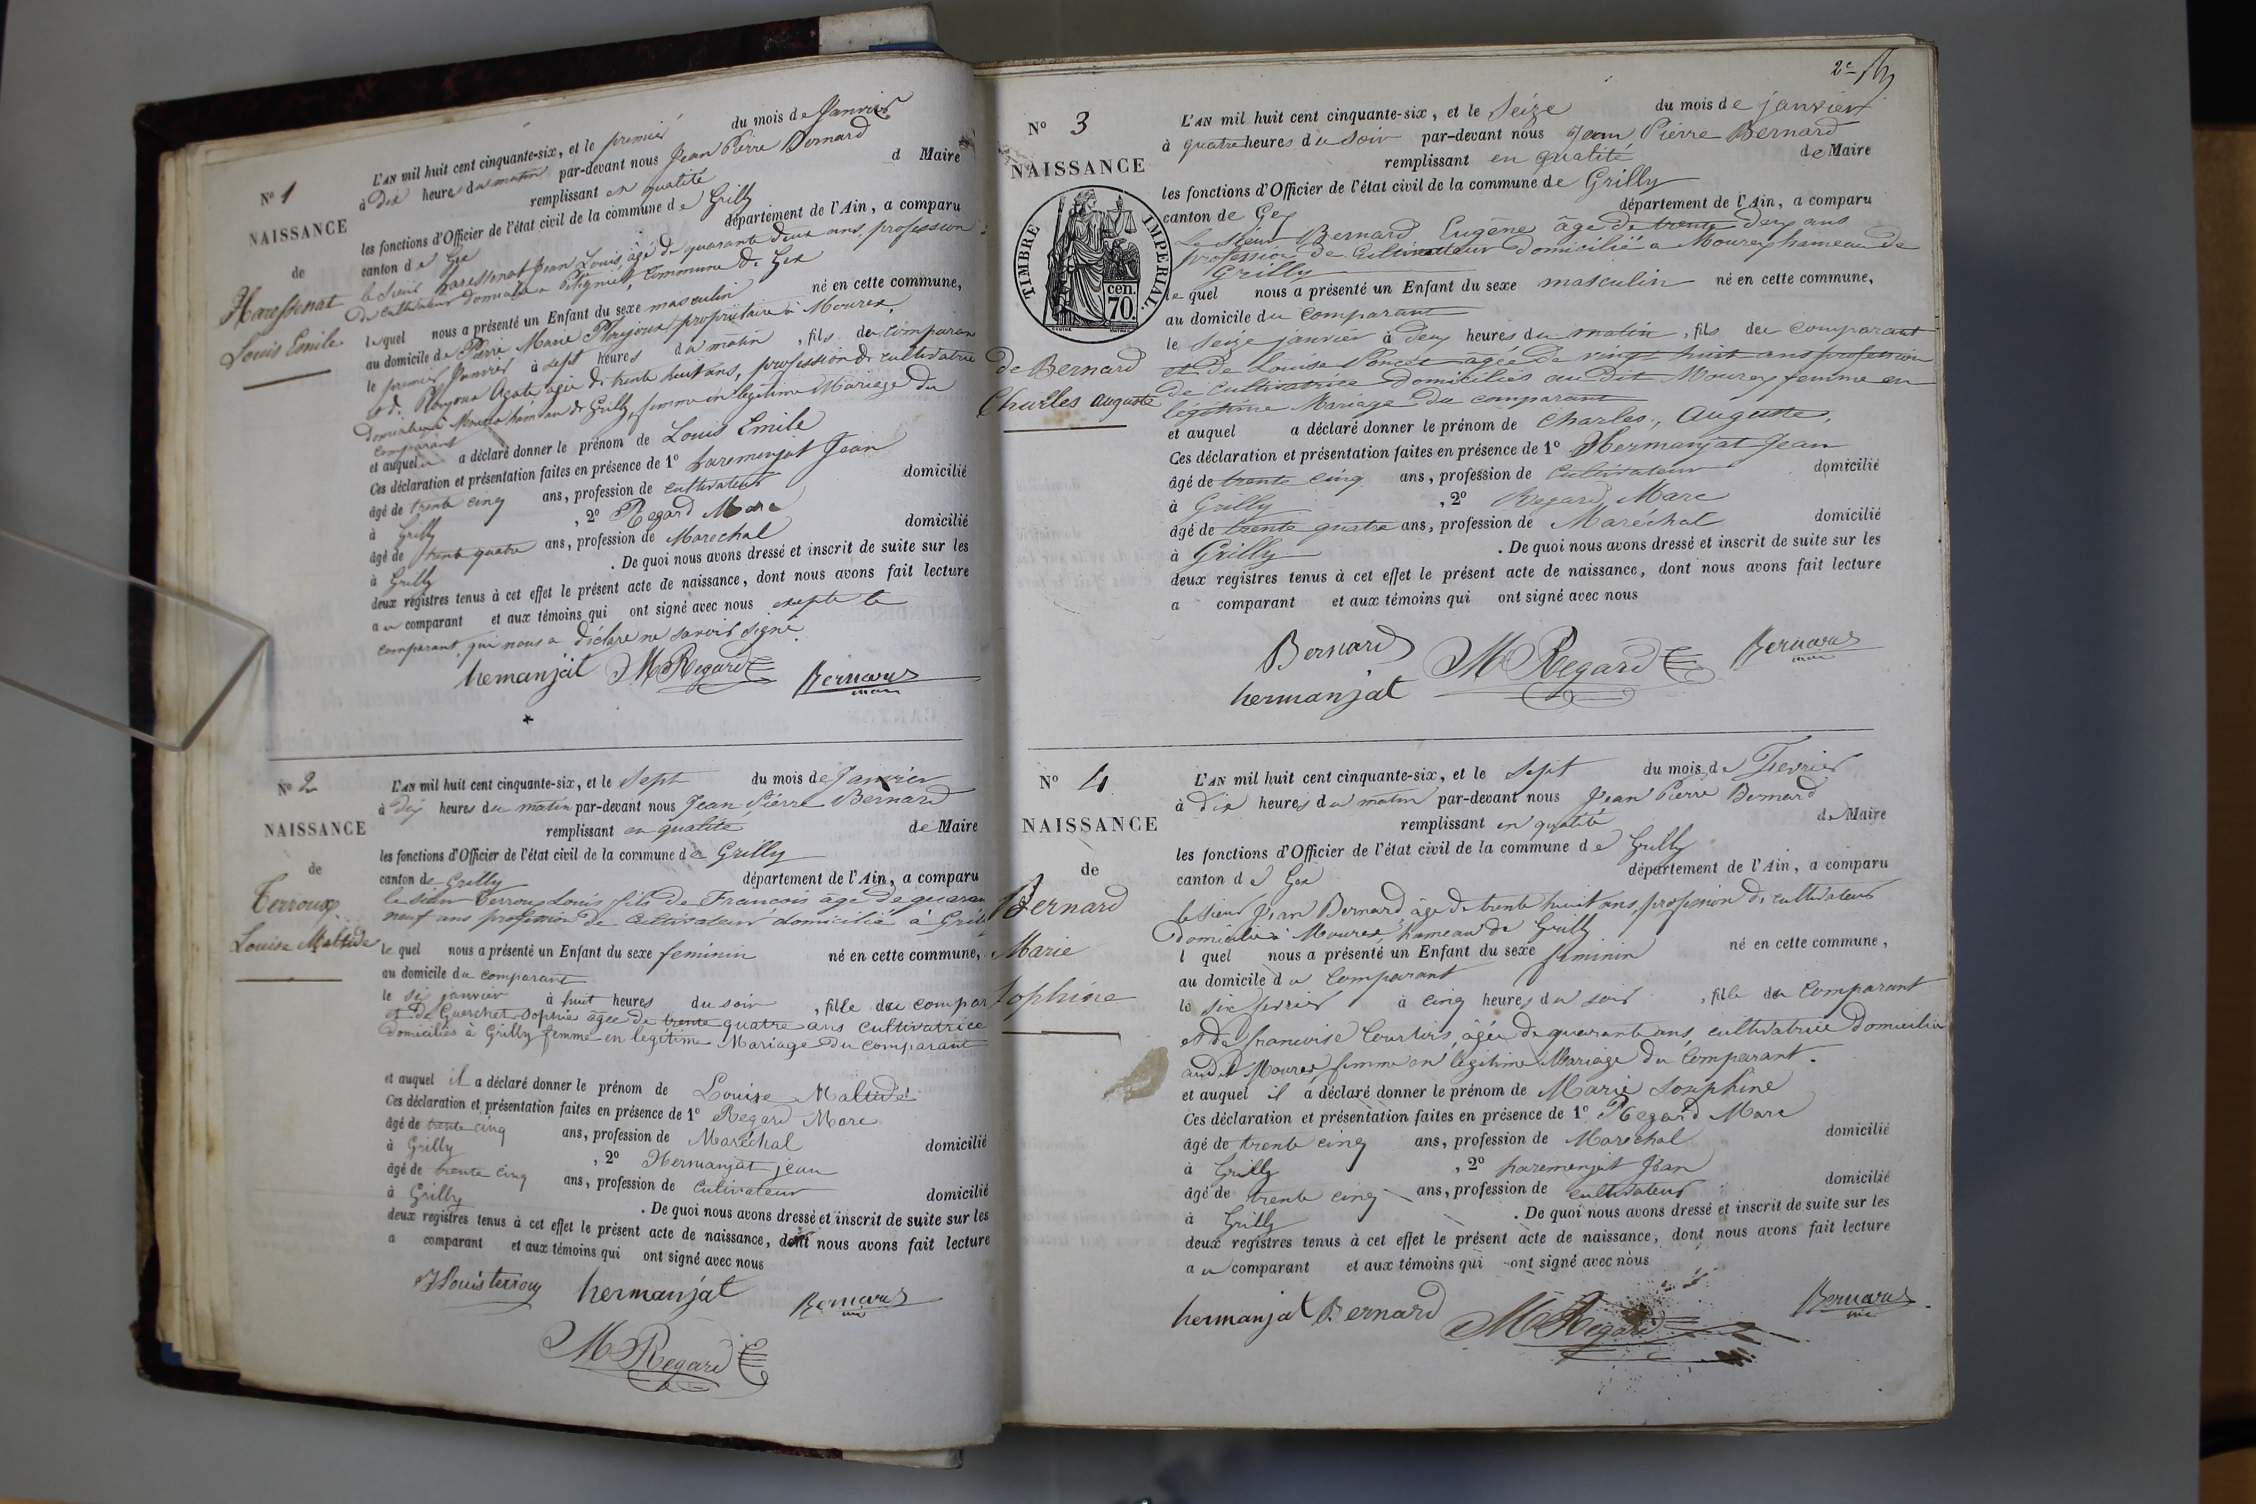 N° 1
NAISSANCE
de
Haressenat
Louis Emile
L'AN mil huit cent cinquante-six, et le premier du mois de Janvier
à Dix heures du matin par-devant nous Jean Pierre Bernard
remplissant en qualité d Maire
les fonctions d'Officier de l'état civil de la commune de Grilly
canton de Gex département de l'Ain, a comparu
le Sieur haressenat Jean Louis âgé de quarante deux ans, profession
de cultivateur domicilié à commune de Gex
lequel nous a présenté un Enfant du sexe masculin né en cette commune,
au domicile de Pierre Marie propriétaire à Mourex,
le premier Janvier à sept heures du matin, fils du comparant
et de Agate âgée de trente huit ans, profession de cultivatrice
domiciliée à Mourex hameau de Grilly, femme en légitime Mariage du
comparant
et auquel a déclaré donner le prénom de Louis Emile
Ces déclaration et présentation faites en présence de 1° haremenjat Jean
âgé de trente cinq ans, profession de cultivateur domicilié
à Grilly, 2° Regard Marc
âgé de trente quatre ans, profession de Marechal domicilié
à Grilly. De quoi nous avons dressé et inscrit de suite sur les
deux registres tenus à cet effet le présent acte de naissance, dont nous avons fait lecture
au comparant et aux témoins qui ont signé avec nous excepte le
comparant, qui nous a déclaré ne savoir signé.
hemanjat M Regard Bernard
maire
N° 2
NAISSANCE
de
Terroux
Louise Maltide
L'AN mil huit cent cinquante-six, et le Sept du mois de Janvier
à dix heures du matin par-devant nous Jean Pierre Bernard
remplissant en qualité de Maire
les fonctions d'Officier de l'état civil de la commune de Grilly
canton de Grilly département de l'Ain, a comparu
le sieur Terroux Louis fils de Francois âgé de quaran
neuf ans profession de Cultivateur domicilié à Grilly
le quel nous a présenté un Enfant du sexe feminin né en cette commune,
au domicile du comparant
le six janvier à huit heures du soir, fille du compar
et de Guerchet Sophie âgée de trente quatre ans cultivatrice
domiciliés à Grilly femme en legitime Mariage du comparant
et auquel il a déclaré donner le prénom de Louise Maltide
Ces déclaration et présentation faites en présence de 1° Regard Marc
âgé de trente cinq ans, profession de Maréchal domicilié
à Grilly, 2° Hermanjat jean
âgé de trente cinq ans, profession de Cultivateur domicilié
à Grilly. De quoi nous avons dressé et inscrit de suite sur les
deux registres tenus à cet effet le présent acte de naissance, dont nous avons fait lecture
a comparant et aux témoins qui ont signé avec nous
Louis terroux hermanjat Bernard
M Regard
2e
N° 3
NAISSANCE
TIMBRE IMPERIAL.
cen.
70.
de Bernard
Charles auguste
L'AN mil huit cent cinquante-six, et le Seize du mois de janvier
à quatre heures du soir par-devant nous Jean Pierre Bernard
remplissant en qualité de Maire
les fonctions d'Officier de l'état civil de la commune de Grilly
canton de Gex département de l'Ain, a comparu
Le Sieur Bernard Eugène âgé de trente deux ans
profession de Cultivateur domicilié à Mourex hameau de
Grilly
le quel nous a présenté un Enfant du sexe masculin né en cette commune,
au domicile du comparant
le Seize janvier à deux heures du matin, fils du comparant
et de Louise Poncet agée de vingt huit ans profession
de cultivatrice domiciliés au dit Mourex femme en
légitime Mariage du comparant
et auquel a déclaré donner le prénom de Charles, Auguste,
Ces déclaration et présentation faites en présence de 1° Hermanjat Jean
âgé de trente cinq ans, profession de Cultivateur domicilié
à Grilly, 2° Regard Marc
âgé de trente quatre ans, profession de Maréchal domicilié
à Grilly. De quoi nous avons dressé et inscrit de suite sur les
deux registres tenus à cet effet le présent acte de naissance, dont nous avons fait lecture
a comparant et aux témoins qui ont signé avec nous
Bernard M Regard Bernard
maire
hermanjat
N° 4
NAISSANCE
de
Bernard
Marie
Josphine
L'AN mil huit cent cinquante-six, et le Sept du mois de Fevrier
à dix heures du matin par-devant nous Jean Pierre Bernard
remplissant en qualité de Maire
les fonctions d'Officier de l'état civil de la commune de Grilly
canton de Gex département de l'Ain, a comparu
le Sieur Jean Bernard, âgé de trente huit ans, profession de cultivateur
domicilié à Mourex, hameau de Grilly
l quel nous a présenté un Enfant du sexe feminin né en cette commune,
au domicile du Comparant
le six fevrier à cinq heures du soir, fille du Comparant
et de francoise Courtois, âgée de quarante ans, cultivatrice domiciliée
audit Mourex, femme en légitime Mariage du Comparant.
et auquel il a déclaré donner le prénom de Marie Josephine
Ces déclaration et présentation faites en présence de 1° Regard Marc
âgé de trente cinq ans, profession de Marechal domicilié
à Grilly, 2° haremenjat Jean
âgé de trente cinq ans, profession de cultivateur domicilié
à Grilly. De quoi nous avons dressé et inscrit de suite sur les
deux registres tenus à cet effet le présent acte de naissance, dont nous avons fait lecture
au comparant et aux témoins qui ont signé avec nous
hermanjat Bernard M Regard Bernard